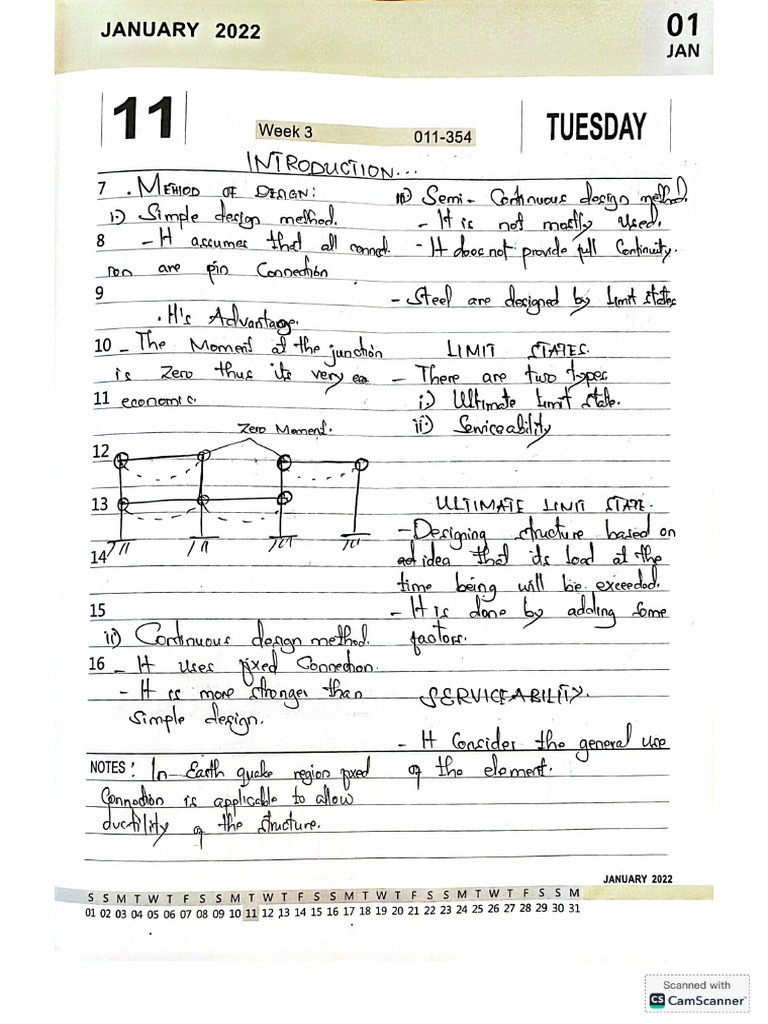 JANUARY 2022
01
JAN
11
Week 3
011-354
TUESDAY
INTRODUCTION...
7 . METHOD OF DESIGN:
i) Simple design method.
8 - It assumes that all connec-
tion are pin Connection
9
. It's Advantage.
10 - The Moment at the junction
is Zero thus its very eco
11 economic.
Zero Moment.
12
13
14
15
ii) Continuous design method.
16 - It uses fixed Connection.
- It is more stronger than
Simple design.
NOTES: In Earth quake region fixed
Connection is applicable to allow
ductility of the structure.
iii) Semi - Continuous design method.
- It is not mostly Used.
- It does not provide full Continuity.
- Steel are designed by Limit states
LIMIT STATES.
- There are two types
i) Ultimate Limit State.
ii) Serviceability
ULTIMATE LIMIT STATE.
- Designing structure based on
idea that its load at the
time being will be exceeded.
- It is done by adding Some
factors.
SERVICEABILITY.
- It Consider the general use
of the element.
JANUARY 2022
S S M T W T F S S M T W T F S S M T W T F S S M T W T F S S M
01 02 03 04 05 06 07 08 09 10 11 12 13 14 15 16 17 18 19 20 21 22 23 24 25 26 27 28 29 30 31
Scanned with
CS CamScanner